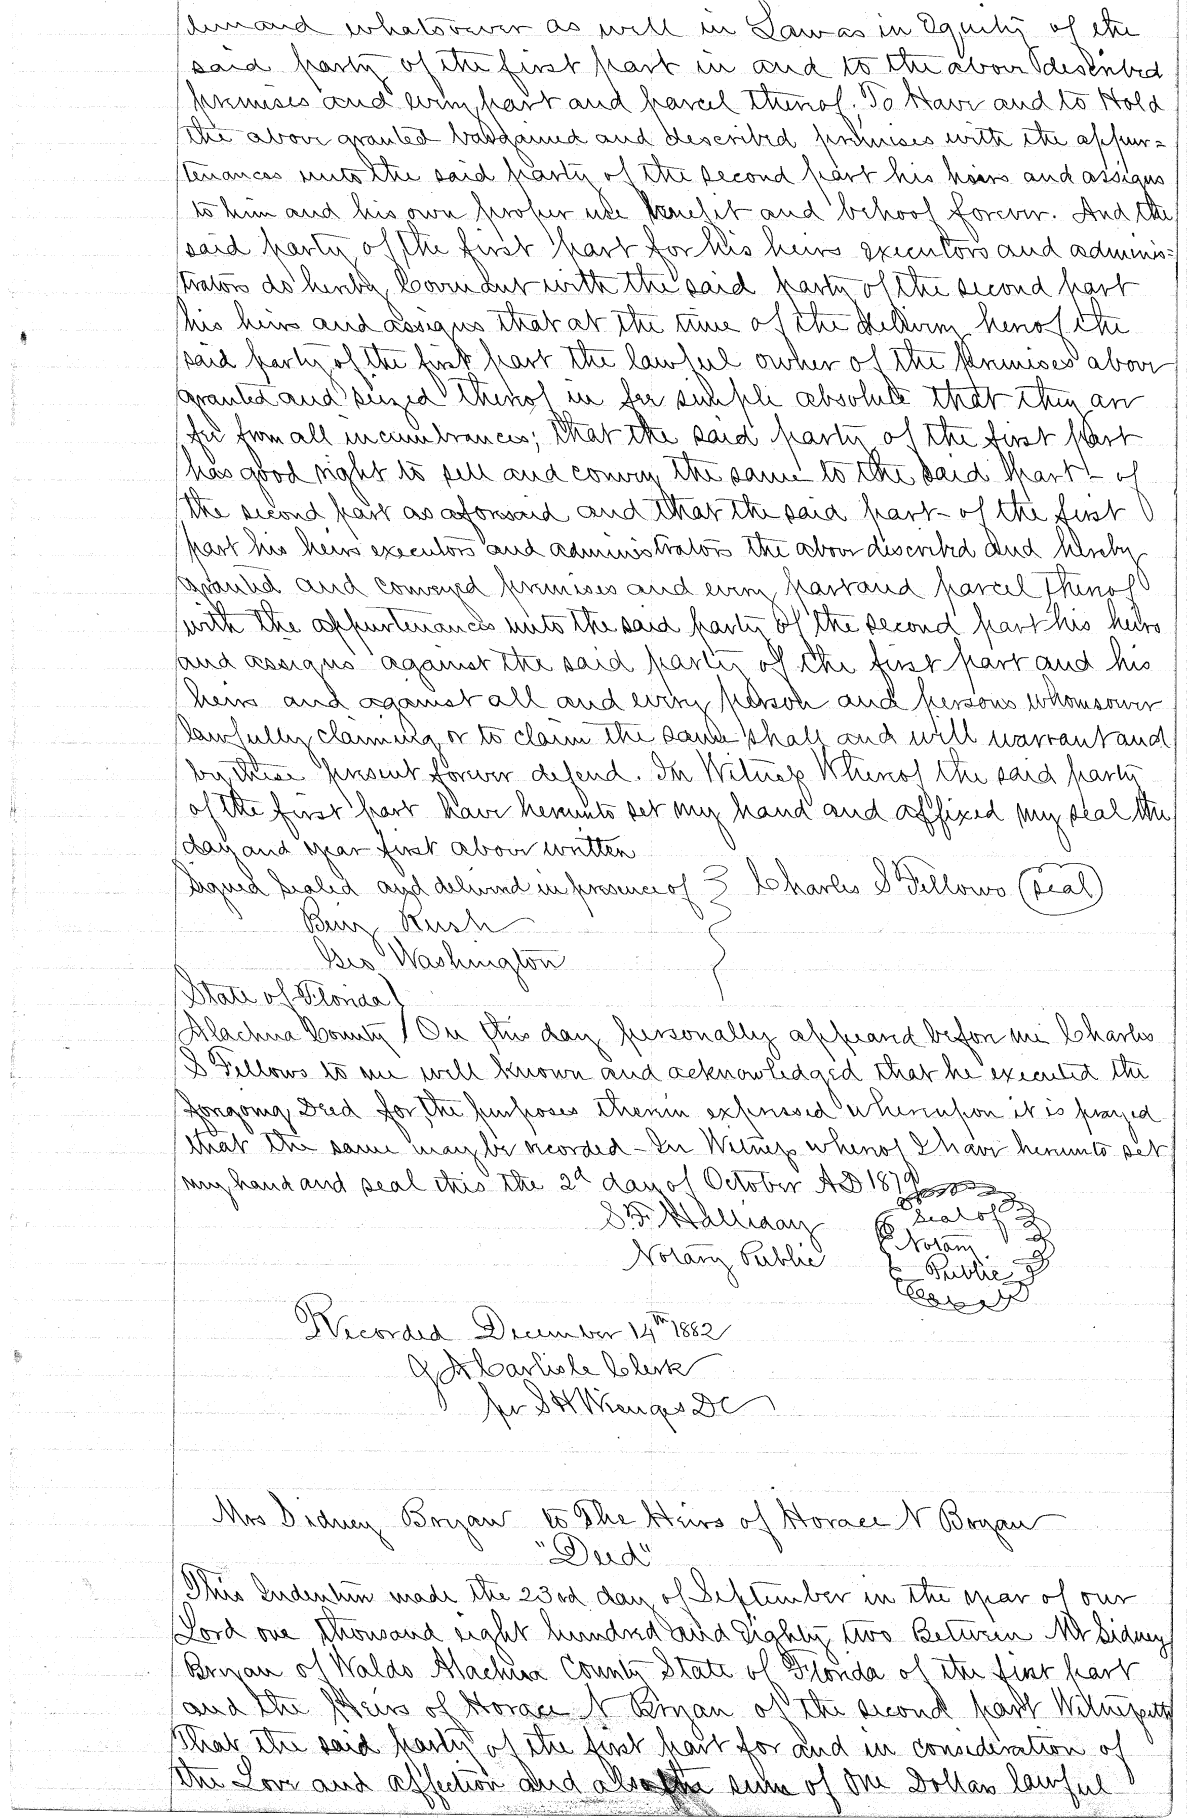 demand whatsoever as well in Law as in Equity of the
said party of the first part in and to the above described
premises and every part and parcel thereof. To Have and to Hold
the above granted bargained and described premises with the appur=
tenances unto the said party of the second part his heirs and assigns
to him and his own proper use benefit and behoof forever. And the
said party of the first part for his heirs executors and adminis=
trators do hereby Covenant with the said party of the second part
his heirs and assigns that at the time of the delivery hereof the
said party of the first part the lawful owner of the premises above
granted and seized thereof in fee simple absolute that they are
free from all incumbrances; that the said party of the first part
has good right to sell and convey the same to the said part- of
the second part as aforesaid and that the said part- of the first
part his heirs executors and administrators the above described and hereby
granted and conveyed premises and every part and parcel thereof
with the appurtenances unto the said party of the second part his heirs
and assigns against the said party of the first part and his
heirs and against all and every person and persons whomsoever
lawfully claiming or to claim the same shall and will warrant and
by these present forever defend. In Witness Whereof the said party
of the first part have hereunto set my hand and affixed my seal the
day and year first above written
Signed Sealed and delivered in presence of } Charles S Fellows (seal)
Benj Rush
Geo Washington
State of Florida )
Alachua County ) On this day personally appeared before me Charles
S Fellows to me well known and acknowledged that he executed the
foregoing Deed for the purposes therein expressed whereupon it is prayed
that the same may be recorded - In Witness whereof I have hereunto set
my hand and seal this the 2d day of October AD 1879
S. F. Halliday
Notary Public
Seal of
Notary
Public
Recorded December 14th 1882
J A Carlisle Clerk
per S H Wienges DC
Mrs Sidney Bryan to The Heirs of Horace N Bryan
"Deed"
This Indenture made the 23rd day of September in the year of our
Lord one thousand eight hundred and Eighty two Between Mr Sidney
Bryan of Waldo Alachua County State of Florida of the first part
and the Heirs of Horace N Bryan of the second part Witnesseth
That the said party of the first part for and in consideration of
the Love and affection and also the sum of One Dollar lawful